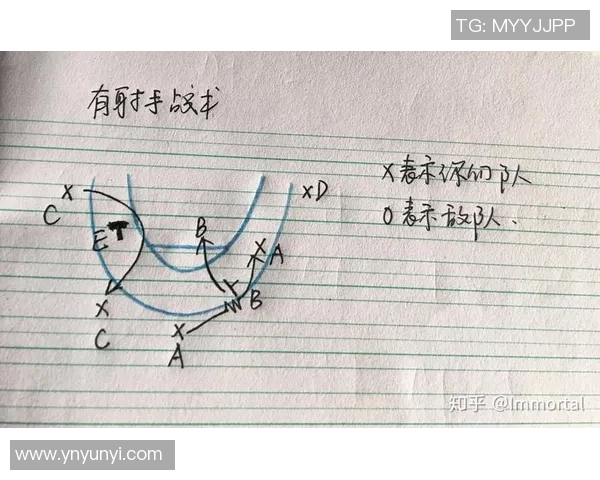 TG: MYYJJPP
有射手战术
X表示你的队
O表示敌队.
X
C
E
B
X
A
XD
X
C
X
A
B
知乎 @Immortal
www.ynyunyi.com